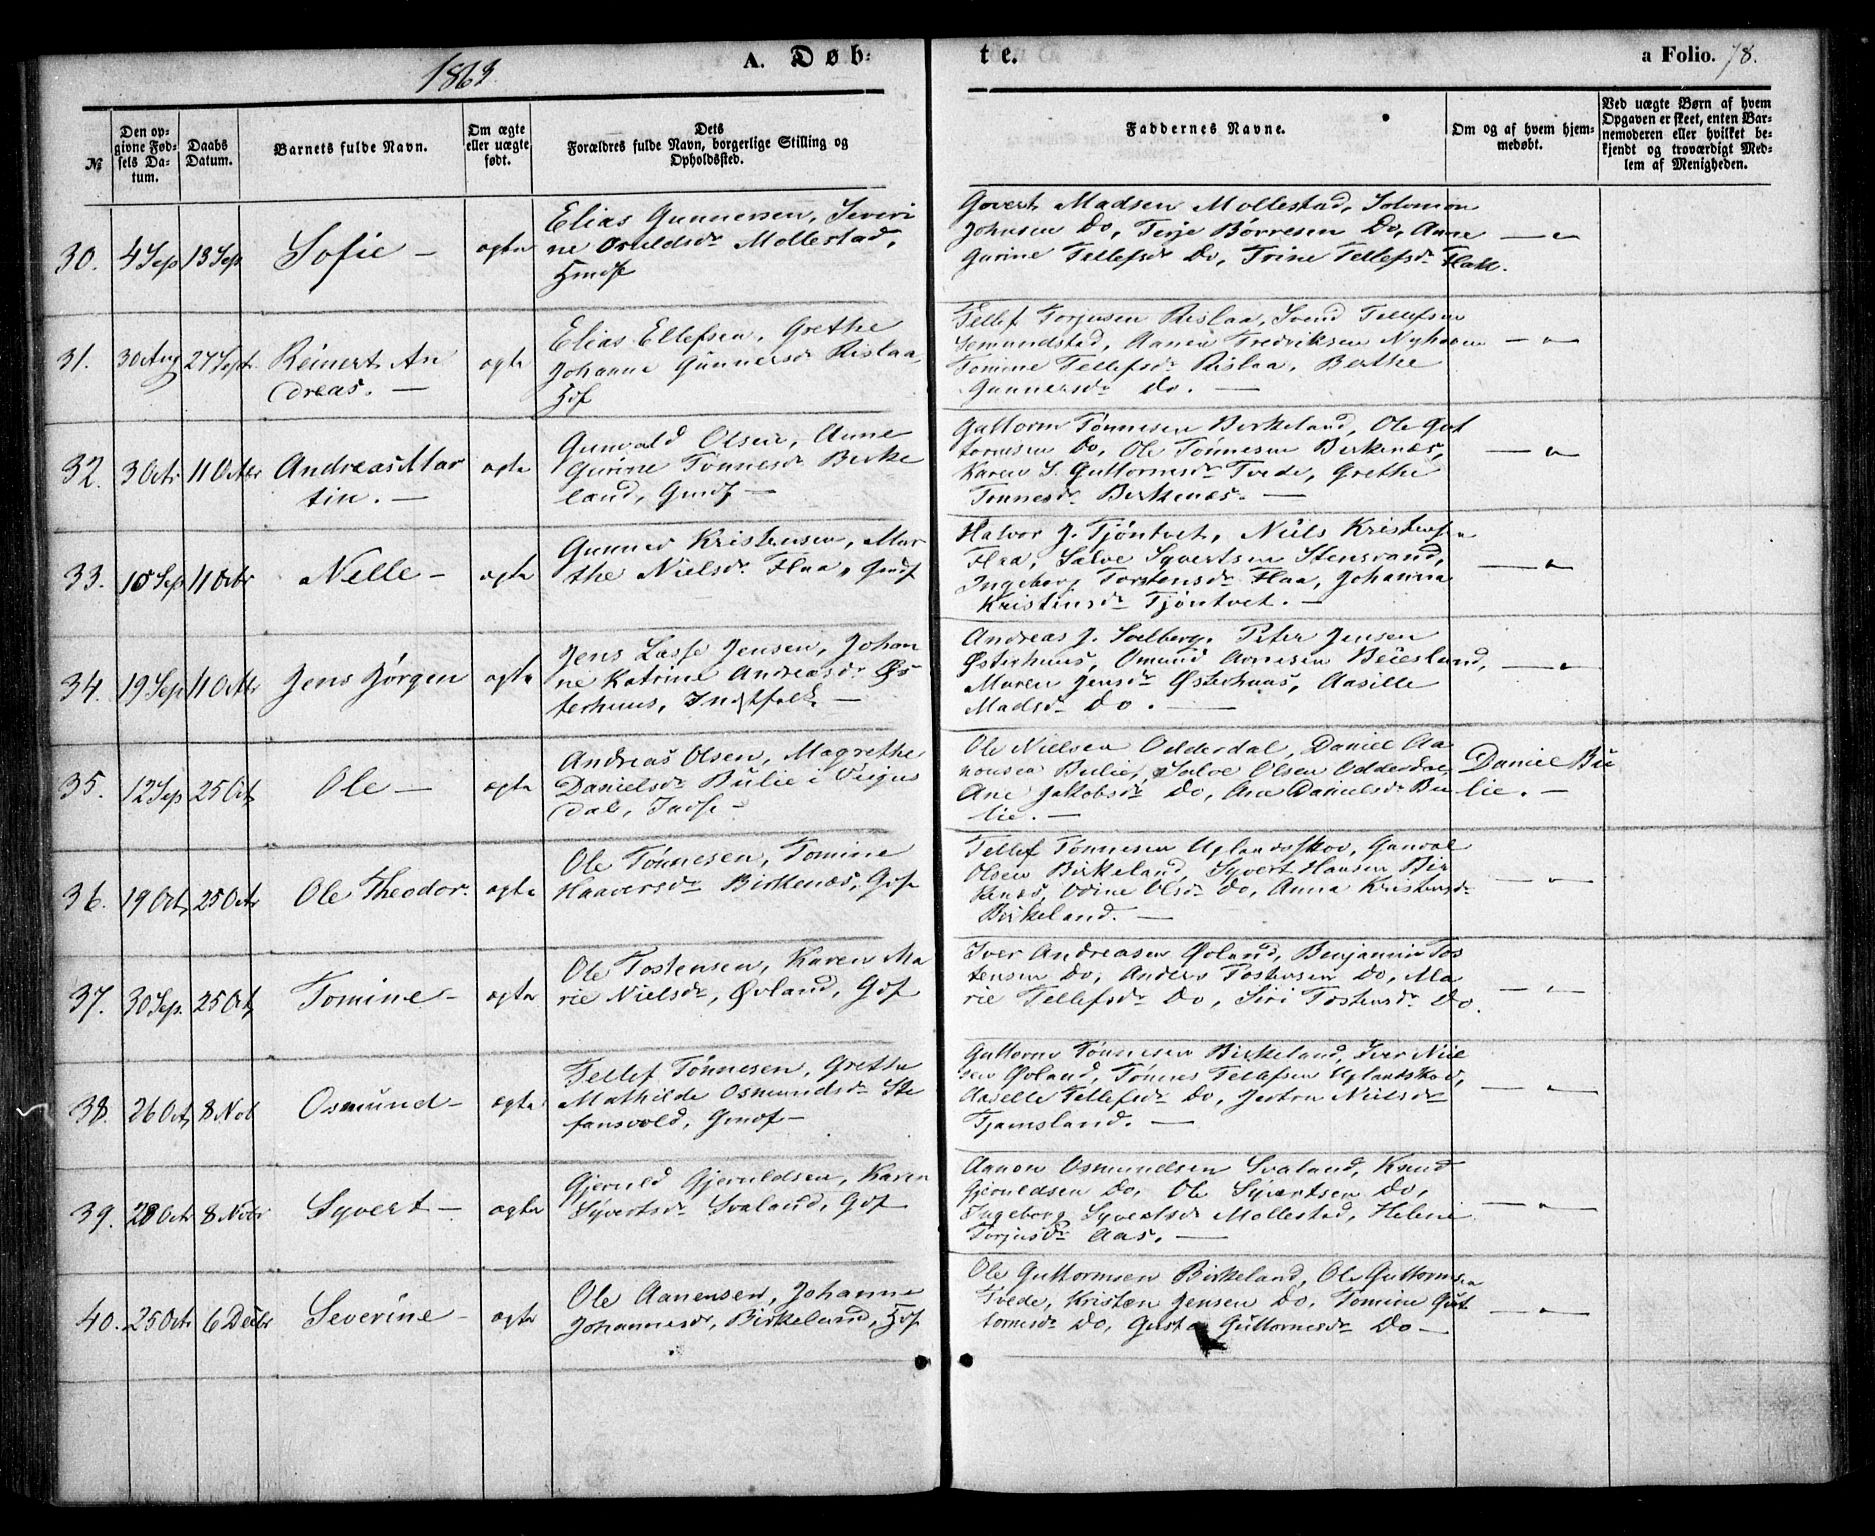 1863.
A. Døb-
te.
a Folio. 78.
№
Den op-
givne Fød-
sels Da-
tum.
Daabs
Datum.
Barnets fulde Navn.
Om ægte
eller uægte
født.
Dets
Forældres fulde Navn, borgerlige Stilling og
Opholdssted.
Faddernes Navne.
Om og af hvem hjem-
medøbt.
Ved uægte Børn af hvem
Opgaven er skeet, enten Bar-
nemoderen eller hvilket be-
kjendt og troværdigt Med-
lem af Menigheden.
30. 4 Sep 13 Sep Sofie — ægte
Elias Gunnersen, Severi
ne Osuldsdr Mollestad,
Hmdf
Govert Madsen Mollestad, Solomon
Johnsen Do, Terje Børresen Do, Anne
Gurine Tellefsdr Do, Trine Tellefsdr Flak.
— " —
31. 30 Aug 27 Sept. Reinert An
dreas. — ægte
Elias Ellefsen, Grethe
Johanne Gunnersdr Rislaa,
Hdf
Tellef Torjusen Rislaa, Svend Tellefsen
Semundstad, Aanen Fredriksen Nyhaven
Tomine Tellefsdr Rislaa, Berthe
Gunnersdr Do. —
— " —
32. 3 Octr 11 Octbr Andreas Mar
tin. — ægte
Gunvald Olsen, Anne
Gurine Tønnesdr Birke
land, Gmdf —
Guttorm Tønnesen Birkeland, Ole Gut
tormsen Do, Ole Tønnesen Birkenæs,
Karen S. Guttormsdr Tvede, Grethe
Tønnesdr Birkenæs. —
— " —
33. 10 Sep 11 Octbr Nelle — ægte
Gunner Kristensen, Mar
the Nielsdr Flaa, Gmdf
Halvor J. Tjøntvet, Niels Kristensen
Flaa, Salve Syvertsen Stensrand,
Ingeborg Torstensdr Flaa, Johanna
Kristensdr Tjøntvet. —
— " —
34. 19 Sep 11 Octbr Jens Jørgen ægte
Jens Lasse Jensen, Johan
ne Katrine Andreasdr Øs
terhuus, Indstfolk —
Andreas J. Solberg, Peter Jensen
Østerhuus, Omund Arnesen Beiesland,
Maren Jensdr Østerhuus, Aasille
Madsdr Do. —
— " —
35. 12 Sep 25 Oct, Ole — ægte
Andreas Olsen, Magrethe
Danielsdr Bulie i Vegus
dal, Indf —
Ole Nielsen Odderdal, Daniel Aa
nonsen Bulie, Salve Olsen Odderdal,
Ane Jakobsdr Do, Ane Danielsdr Bu
lie. —
Daniel Bu
lie. —
36. 19 Oct, 25 Octr Ole Theodor. ægte
Ole Tønnesen, Tomine
Haaversdr Birkenæs, Gdf
Tellef Tønnesen Uglandsskov, Gunval
Olsen Birkeland, Syvert Hansen Bir
kenæs, Odine Olsdr Do, Anna Kristensdr
Birkeland. —
— " —
37. 30 Sep. 25 Oct, Tomine — ægte
Ole Tostensen, Karen Ma
rie Nielsdr, Øvland, Gdf
Iver Andreasen Øvland, Benjamin Tos
tensen Do, Anders Tostensen Do, Ma
rie Tellefsdr Do, Siri Tostensdr Do.
— " —
38. 26 Oct, 8 Nob Osmund — ægte
Tellef Tønnesen, Grethe
Mathilde Osmundsdr Ste
fansvold, Gmdf —
Guttorm Tønnesen Birkeland, Iver Niel
sen Øvland, Tønnes Tellefsen Uglandskov,
Aaselle Tellefsdr Do, Nielsdr
Tjomsland. —
— " —
39. 28 Octr 8 Nobr Syvert — ægte
Gjeruld Gjeruldsen, Karen
Syvertsdr Svaland, Gdf
Aanon Osmundsen Svaland, Knud
Gjeruldsen Do, Ole Syvertsen Do,
Ingeborg Syvertsdr Mollestad, Helene
Torjusdr Aas. —
— " —
40. 25 Octr 6 Decbr Severine — ægte
Ole Aanensen, Johanne
Johannesdr, Birkeland, Hdf
Ole Guttormsen Birkeland, Ole Guttormsen
Tvede, Kristen Jensen Do, Tomine Gut
tormsdr Do, Gusta Guttormsdr Do —
— " —